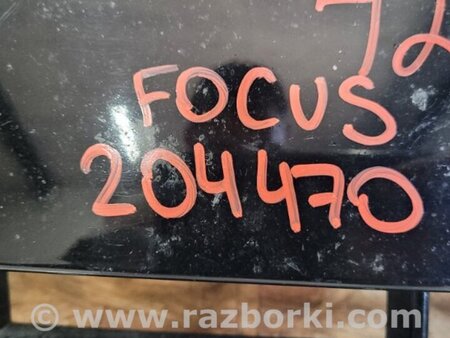 72
FOCUS
204470
© www.razborki.com